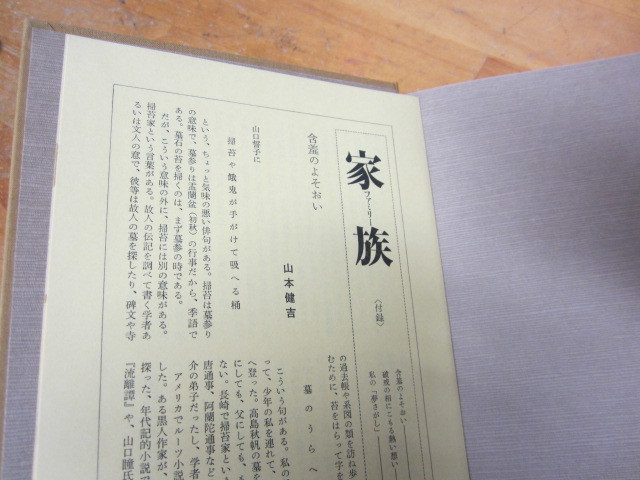 家族
ファミリー
〈付録〉
含羞のよそおい
破戒の和にこもる熱い想い
私の「夢さがし」
含羞のよそおい
山本健吉
山口誓子に
掃苔や餓鬼が手がけて吸へる桶
という、ちょっと気味の悪い俳句がある。掃苔は墓参り
の意味で、墓参りは盂蘭盆（初秋）の行事だから、季語で
ある。墓石の苔を掃くのは、まず墓参の時である。
だが、こういう意味の外に、掃苔には別の意味がある。
掃苔家という言葉がある。故人の伝記を調べて書く学者あ
るいは文人の意で、彼等は故人の墓を探したり、碑文や寺
の過去帳や系図の類を訪ね歩
むために、苔をはらって字を
墓のうらへ
こういう句がある。私の
って、少年の私を連れて、
へ登った。高島秋帆の墓を
にしても、父にしても、
ない。長崎で掃苔家とい
唐通事、阿蘭陀通事など
介の弟子だったし、学者
アメリカでルーツ小説
した。ある黒人作家が、
探った、年代記的小説で
『流離譚』や、山口瞳氏